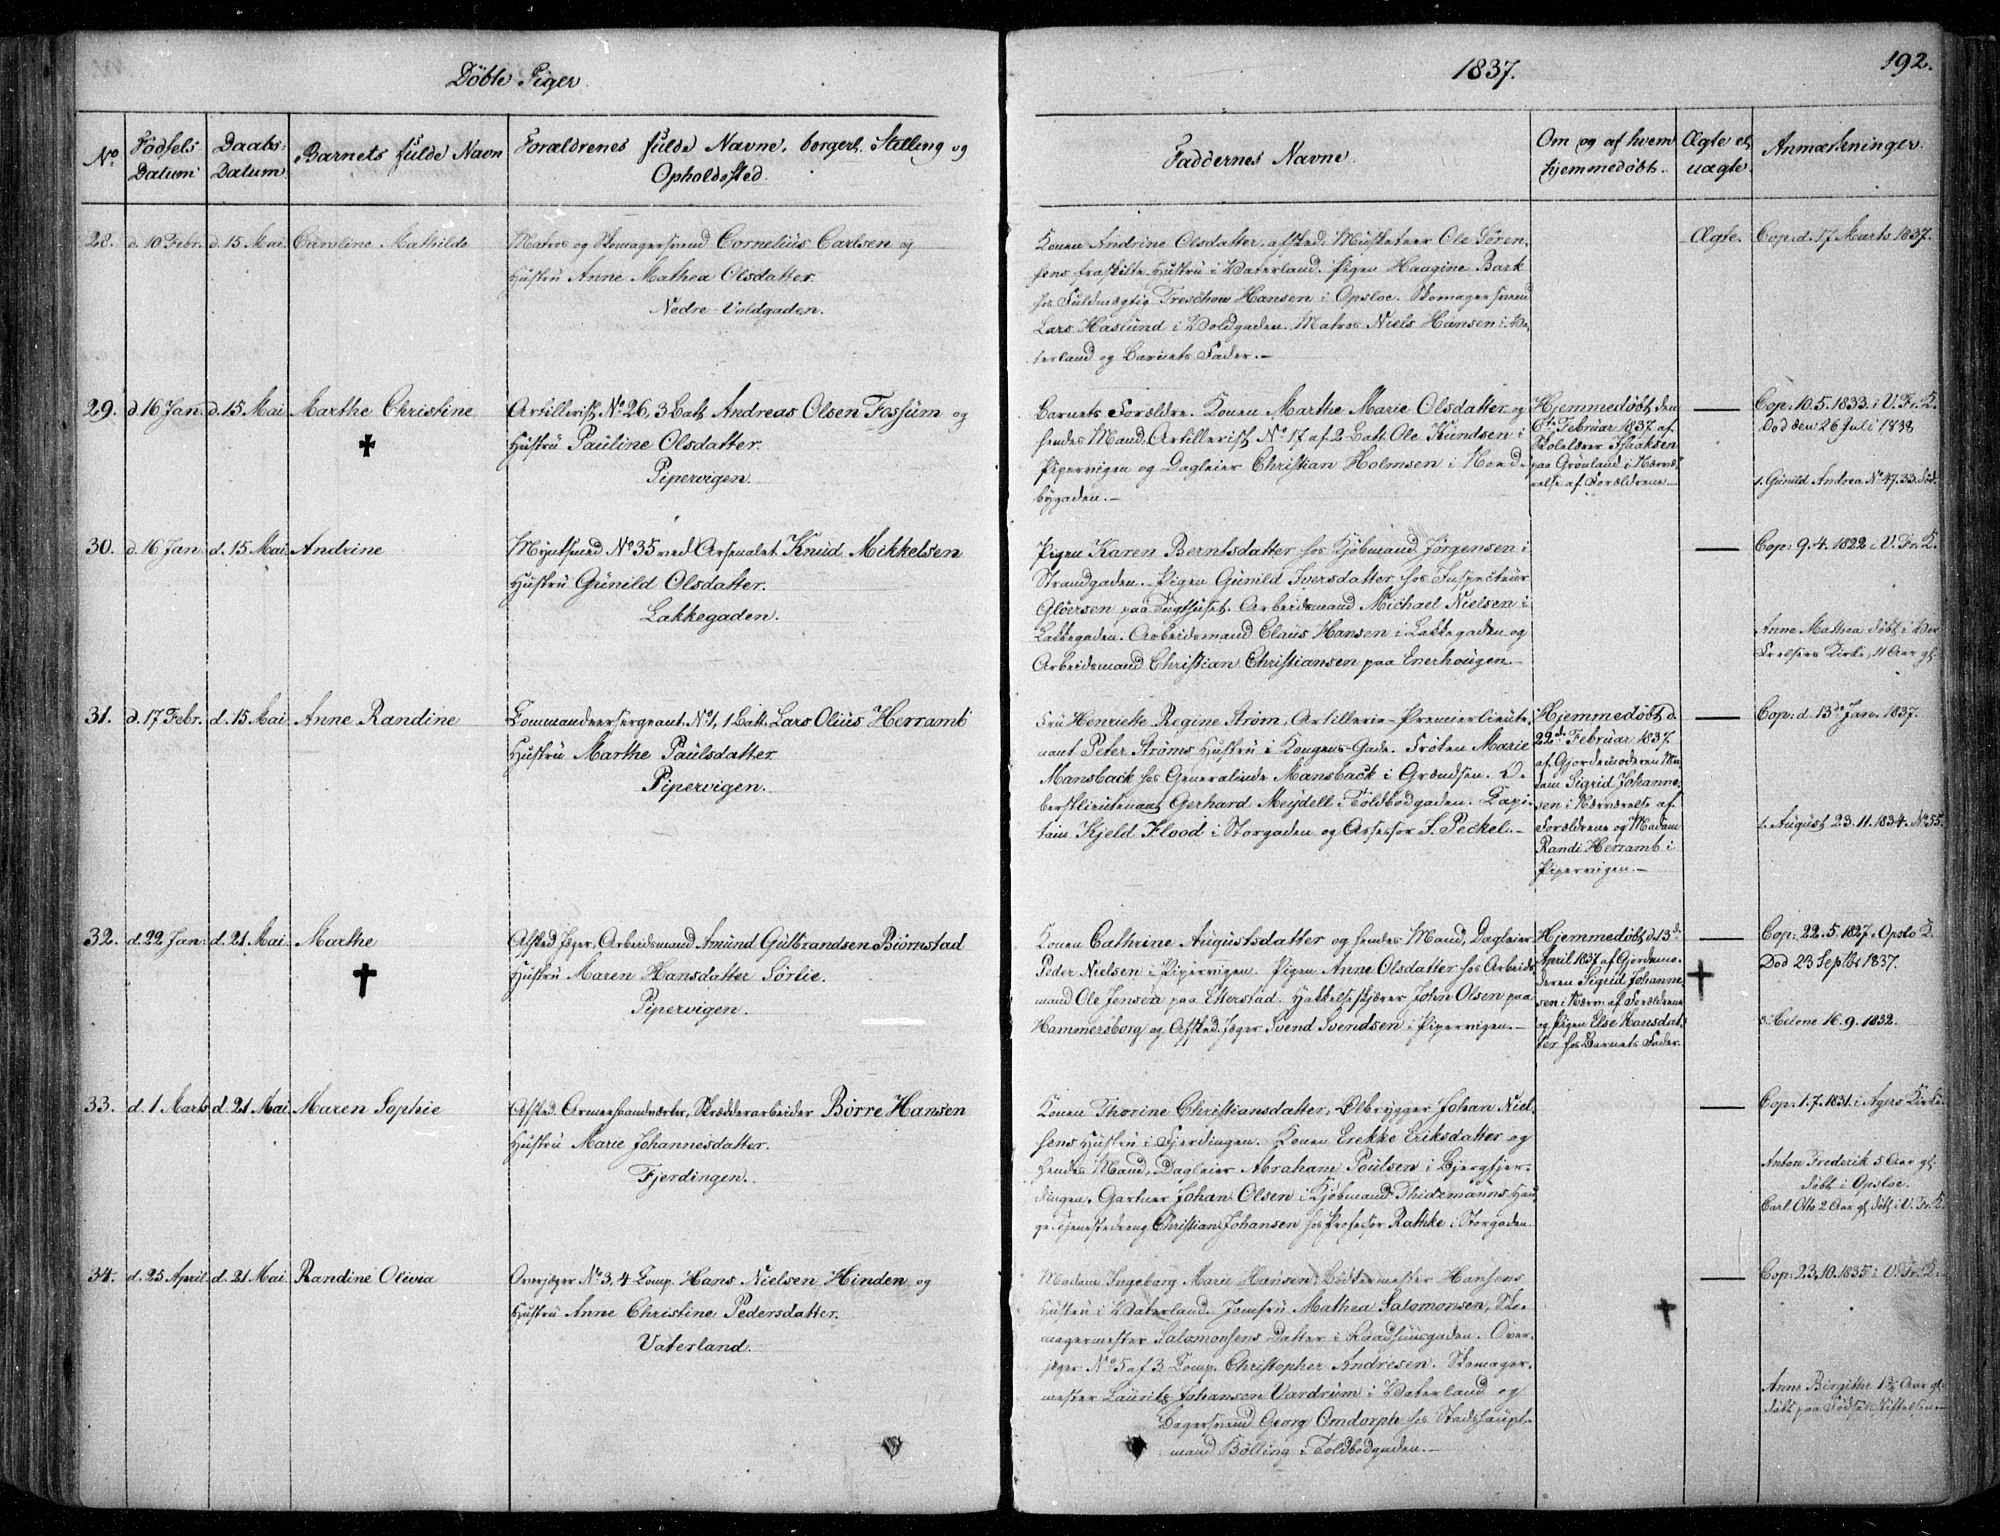 Döbte Piger.
1837.
192.
No
Födsels Datum
Daabs-Datum
Barnets fulde Navn
Forældrenes fulde Navne, borgerl. Stilling og Opholdssted.
Faddernes Navne.
Om og af hvem hjemmedöbt.
Ægte el. uægte.
Anmærkninger.
28. d. 10 Febr. d. 15 Mai Caroline Mathilde
Matros og Skomagersvend Cornelius Carlsen og
Hustru Anne Mathea Olsdatter.
Nedre-Voldgaden.
Konen Andrine Olsdatter, afsked. Musketeer Ole Sören-
sens fraskilte Hustru i Vaterland. Pigen Haagine Bark
hos Fuldmægtig Treschow Hansen i Opsloe. Skomagersvend
Lars Haslund i Voldgaden. Matros Niels Hansen i Va-
terland og Barnets Fader.-
Ægte.
Cop. d. 17 Marts 1837.
29. d. 16 Jan. d. 15 Mai Marthe Christine
Artillerist No 26, 3 Batt. Andreas Olsen Fossum og
Hustru Pauline Olsdatter.
Pipervigen
Barnets Forældre. Konen Marthe Marie Olsdatter og
hendes Mand, Artillerist No 17 af 2 Batt. Ole Knudsen i
Pipervigen og Dagleier Christian Holmsen i Nord-
bygaden.-
Hjemmedöbt den
6te Februar 1837 af
Skolelærer Isaaksen
paa Grönland i Nærvæ-
relse af Forældrene.-
Cop: 10.5.1833 i V. Fr. K.
Död den 26 Juli 1838
1. Gunild Andrea No 47.33. död.
30. d. 16 Jan d. 15 Mai Andrine
Myntsmed No 35 ved Arsenalet Knud Mikkelsen
Hustru Gunild Olsdatter.
Lakkegaden.
Pigen Karen Berntsdatter hos Kjöbmand Jörgensen i
Strandgaden. Pigen Gunild Iversdatter hos Inspecteur
Glöersen paa Tugthuset. Arbeidsmand Michael Nielsen i
Lakkegaden. Arbeidsmand Claus Hansen i Lakkegaden og
Arbeidsmand Christian Christiansen paa Enerhougen.-
Cop: 9.4.1822 i V. Fr. K.
Anne Mathea döbt i Vor
Frelsers Kirke, 11 Aar gl.
31. d. 17 Febr. d. 15 Mai Anne Randine
Commandeersergeant No 1, 1 Batt. Lars Olius Herramb
Hustru Marthe Paulsdatter
Pipervigen.
Fru Henriette Regine Ström, Artillerie-Premierlieute-
nant Peter Ströms Hustru i Kongens-Gade. Fröken Marie
Mansback hos Generalinde Mansback i Grændsen. O-
berstlieutenant Gerhard Meydell i Toldbodgaden. Kapi-
tain Kjeld Flood i Storgaden og Assessor J. Peckel.-
Hjemmedöbt d.
22de Februar 1837
af Gjordemoderen Ma-
dam Sigrid Johanne-
sen i Nærværelse af
Forældrene og Madam
Randi Herramb i
Pipervigen.-
Cop: d. 13de Jan. 1837.
1. August 23.11.1834. No 55.
32. d. 22 Jan. d. 21 Mai Marthe
Afsked. Jæger, Arbeidsmand Amund Gulbrandsen Biörnestad
Hustru Maren Hansdatter Sörlie.
Pipervigen.
Konen Cathrine Augustsdatter og hendes Mand, Dagleier
Peder Nielsen i Pipervigen. Pigen Anne Olsdatter hos Arbeids-
mand Ole Jensen paa Etterstad. Hakkelseskjærer John Olsen paa
Hammersborg og Afsked. Jæger Svend Svendsen i Pipervigen.-
Hjemmedöbt d. 13de
April 1837 af Gjordemo-
deren Sigrid Johanne-
sen i Nærv. af Forældrene
og Pigen Else Hansdat-
ter hos Barnets Fader.
Cop: 22.5.1827 i Opslo K.
Död 23 Septbr 1837.
Helene 16.9.1832.
33. d. 1 Marts d. 21 Mai Maren Sophie
Afsked. Armeehandværker, Skrædderarbeider Börre Hansen
Hustru Marie Johannesdatter.
Fjerdingen.
Konen Thorine Christiansdatter, Ölbrygger Johan Niel-
sens Hustru i Fjerdingen. Konen Erekke Eriksdatter og
hendes Mand, Dagleier Abraham Poulsen i Bjergfjer-
dingen. Gartner Johan Olsen i Kjöbmand Thidemanns Hau-
ge. Tjenestedreng Christian Johansen hos Professor Rathke i Storgaden.
Cop: 1.7.1831 i Agers Kirke
Anton Frederik 5 Aar gl.
döbt i Opsloe.
Carl Otto 2 Aar gl. döbt i V. Fr. K.
34. d. 25 April d. 21 Mai Randine Olivia
Overjæger No 3, 4 Comp. Hans Nielsen Hinden og
Hustru Anne Christine Pedersdatter.
Vaterland.
Madam Ingeborg Marie Hansen, Bödtermester Hansens
Hustru i Vaterland. Jomfru Mathea Salomonsen, Sko-
magermester Salomonsens Datter i Raadhuusgaden. Over-
jæger No 5 af 3 Comp. Christopher Andresen. Skomager-
mester Lauritz Johansen Vardrum i Vaterland og
Bagersvend Georg Omdorph hos Stadshaupt-
mand Bölling i Toldbodgaden.-
Cop: 23.10.1835 i V. Fr. K.
Anne Birgithe 1¾ Aar gl.
döbt paa Föds. Stiftelsen